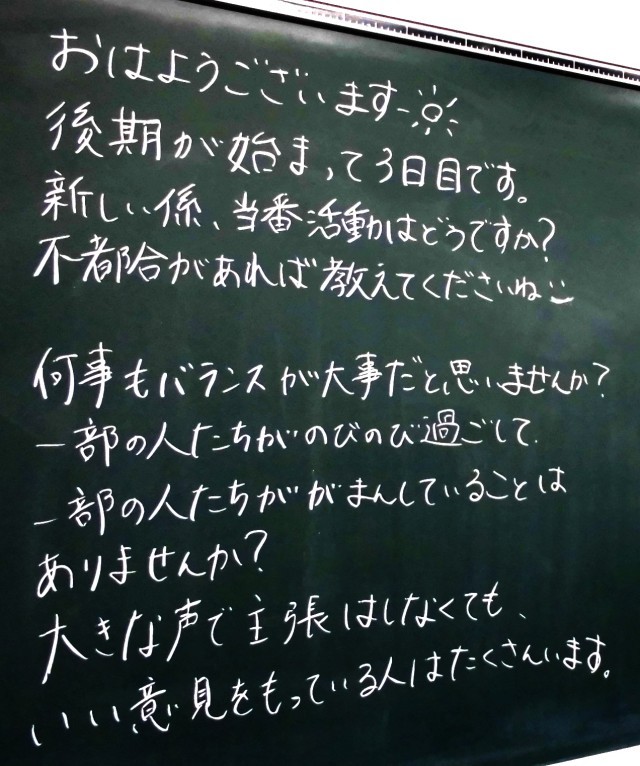 おはようございます
後期が始まって3日目です。
新しい係、当番活動はどうですか?
不都合があれば教えてくださいね
何事もバランスが大事だと思いませんか?
一部の人たちがのびのび過ごして、
一部の人たちががまんしていることは
ありませんか?
大きな声で主張はしなくても、
いい意見をもっている人はたくさんいます。